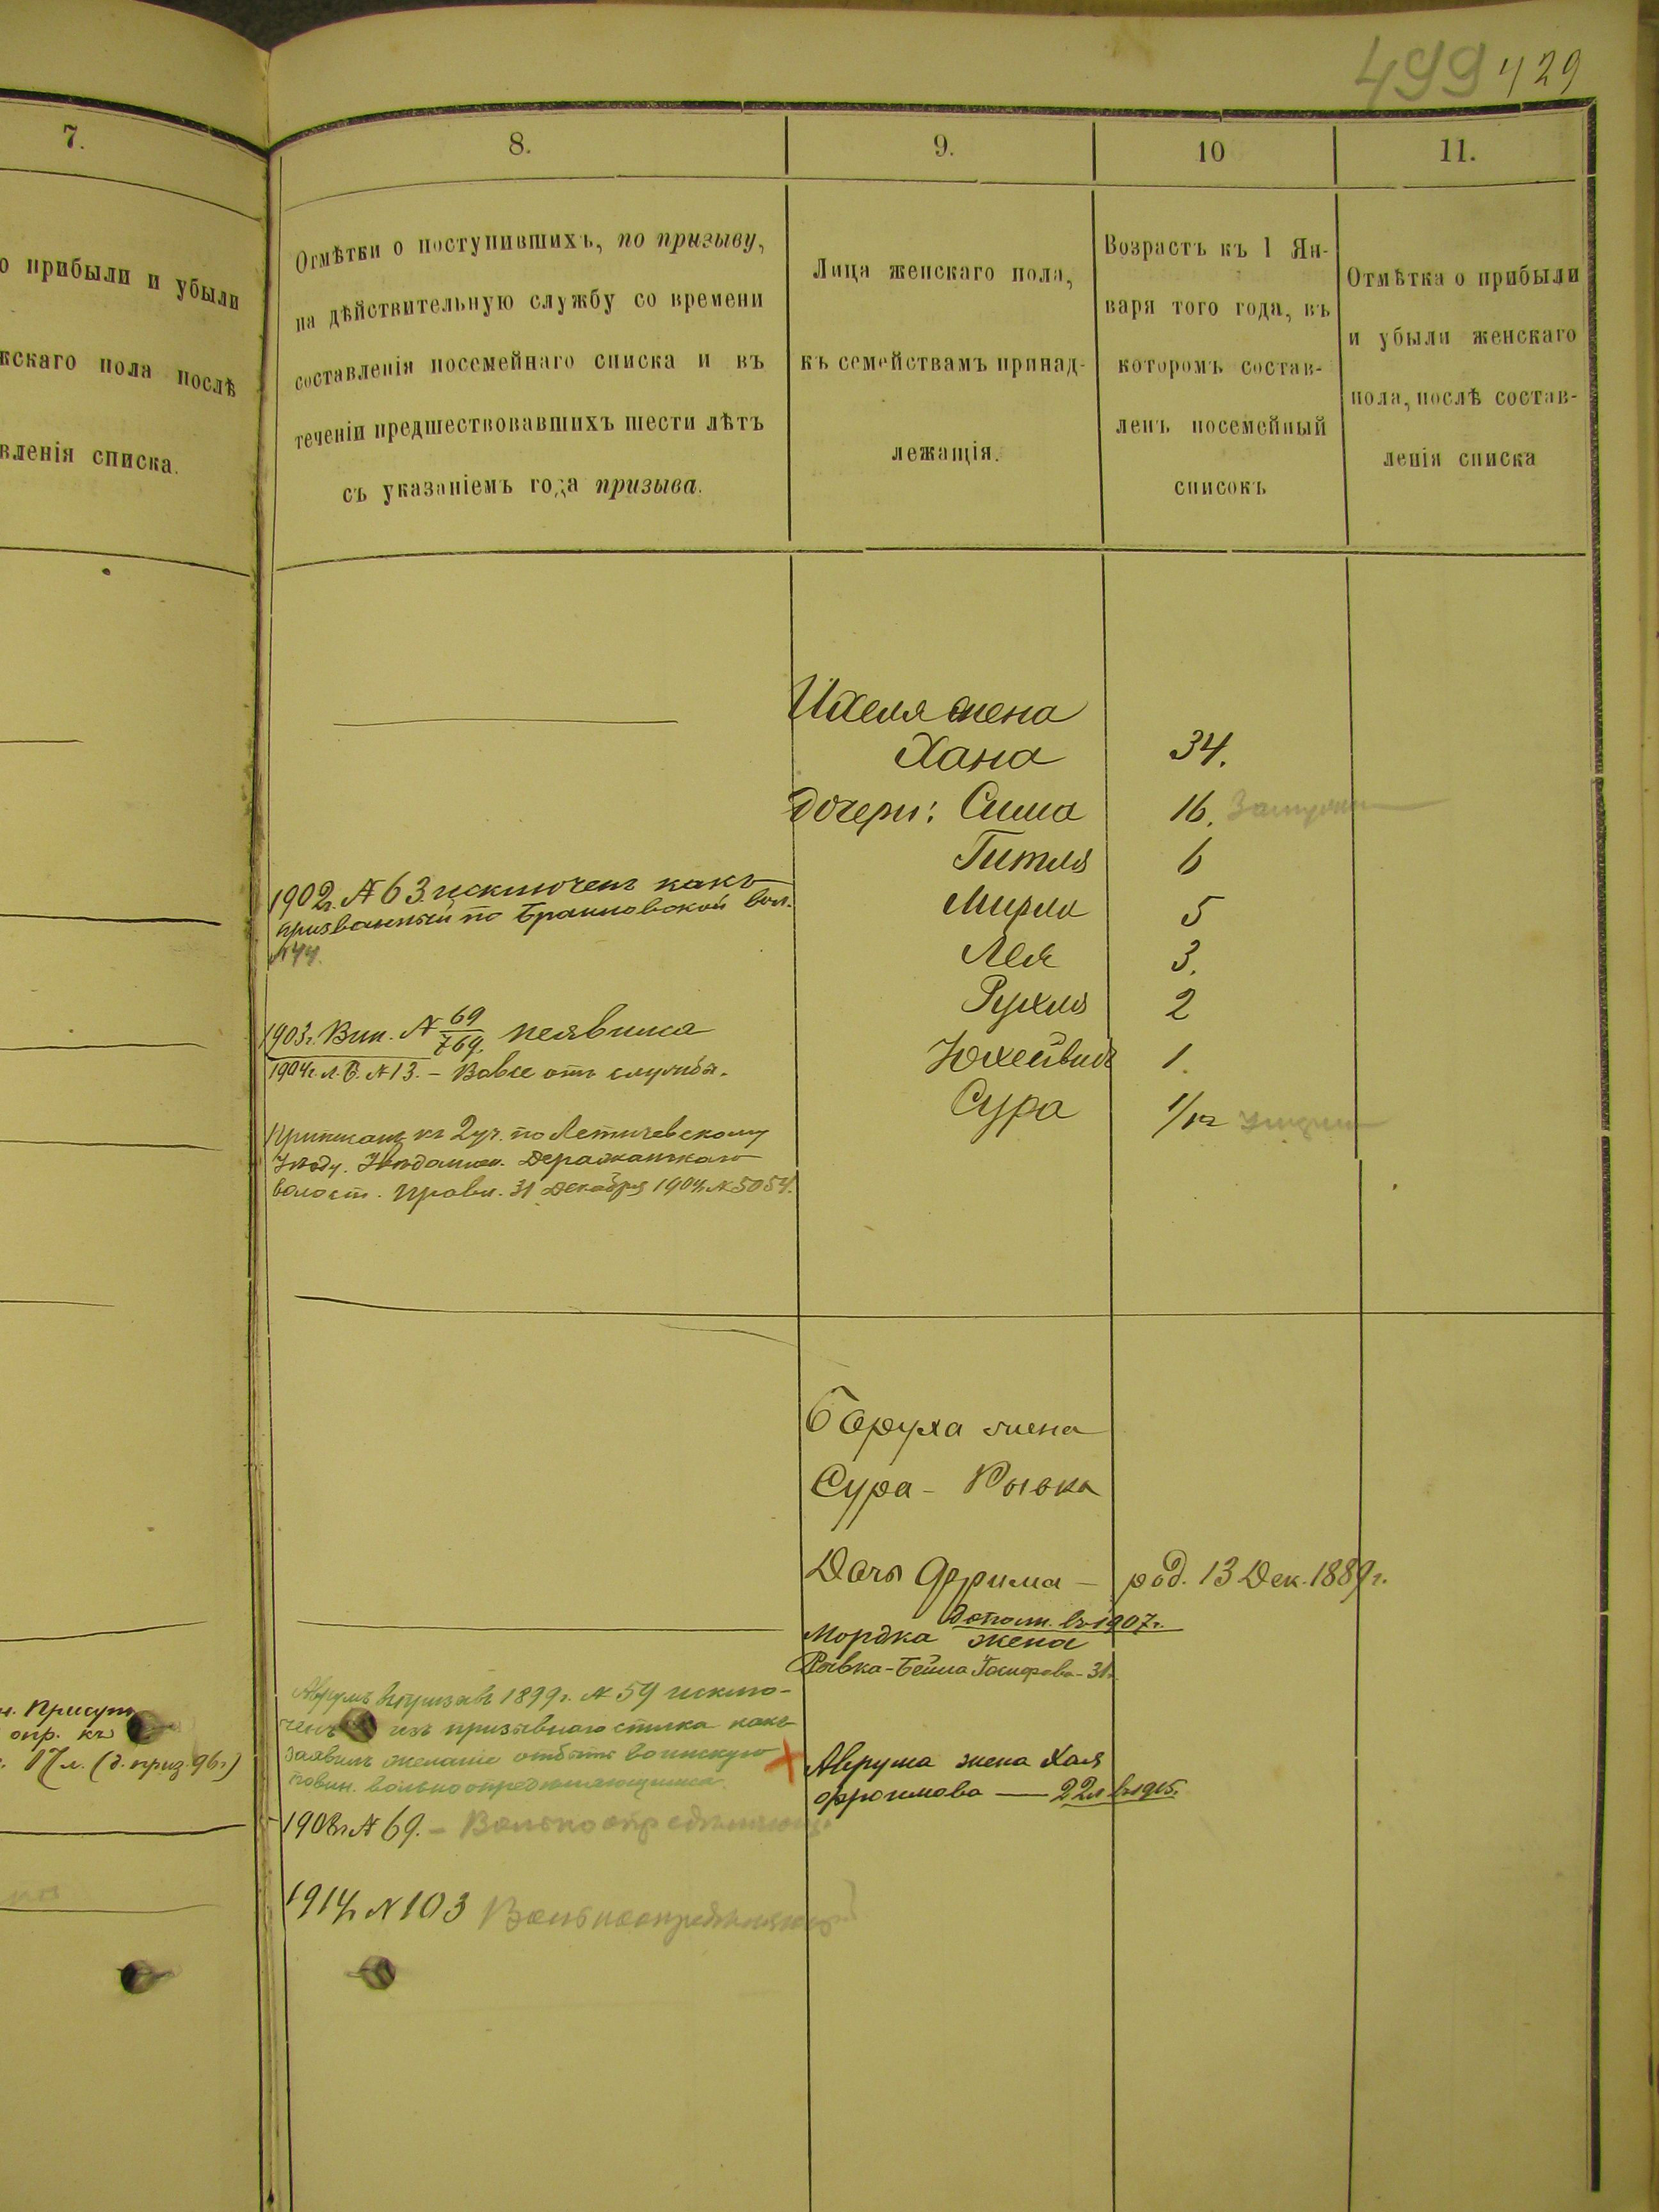 499 429
7.
8.
9.
10
11.
о прибыли и убыли
жскаго пола послѣ
вленія списка.
Отмѣтки о поступившихъ, по призыву,
на дѣйствительную службу со времени
составленія посемейнаго списка и въ
теченіи предшествовавшихъ шести лѣтъ
съ указаніемъ года призыва.
Лица женскаго пола,
къ семействамъ принад-
лежащія.
Возрастъ къ 1 Ян-
варя того года, въ
которомъ состав-
ленъ посемейный
списокъ
Отмѣтка о прибыли
и убыли женскаго
пола, послѣ состав-
ленія списка
жена
Хана 34.
дочери: Сима 16.
Гитля 6
Мирля 5
Лея 3.
Рухля 2
Юхейвидъ 1.
Сура
1902г. № 63 исключенъ какъ
призванный по Браиловской вол.
№44.
1903г. Вин. № 69/769. неявился
1904г. Л. Б. № 13. – Вовсе отъ службы.
Приписанъ къ 2 уч. по Летичевскому
уѣзду. Увѣдомлен. Деражнянскаго
волост. Правл. 31 Декабря 1904 № 5054.
Боруха жена
Сура - Рывка
Дочь Фрима – род. 13 Дек. 1889г.
дополн. въ 1907г.
Мордка жена
Рывка-Бейла 31
Аврумъ въ призывъ 1899г. № 59 исклю-
ченъ изъ призывнаго списка какъ
заявилъ желаніе отбыть воинскую
повин. вольноопредѣляющимся.
Аврума жена Хая
Фроимова — 22л въ 1915.
1908г № 69. – Вольноопредѣляющ.
1914г № 103 Вольноопредѣляющій
н. Присут
опр. къ
17 л. (д. приз. 96г)